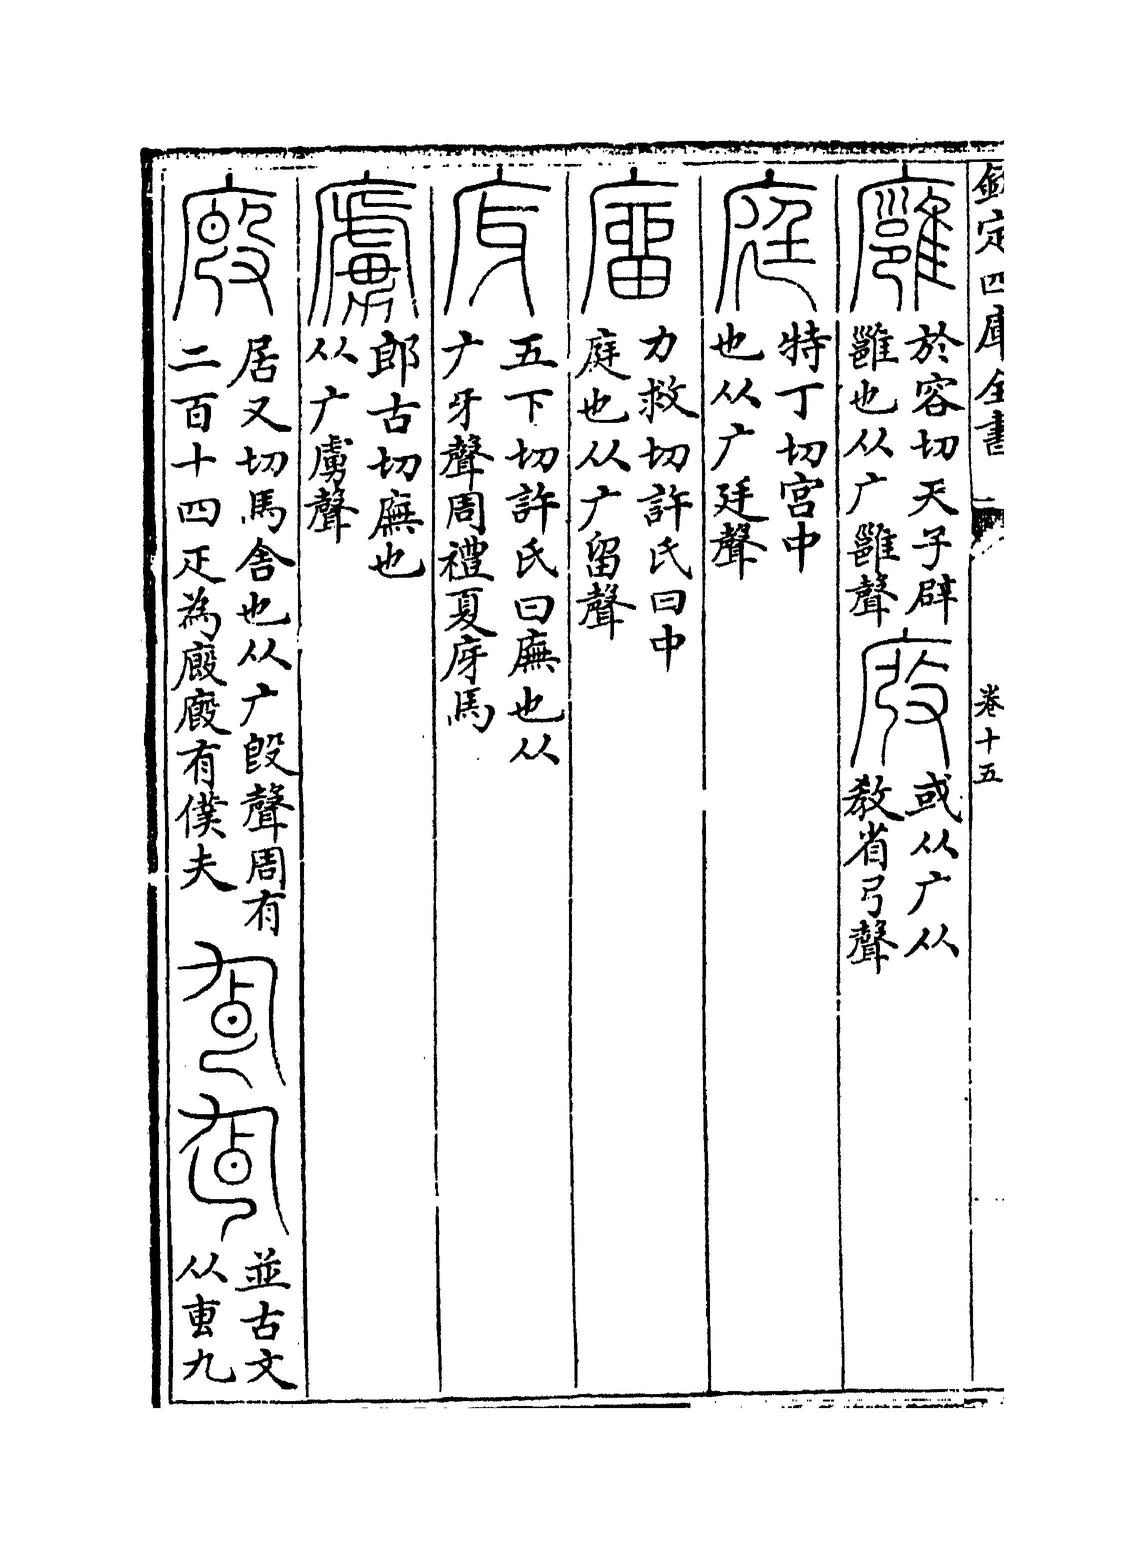 欽定四庫全書
卷十五
廱
於容切天子辟
雝也从广雝聲
㡣
或从广从
敎省弓聲
庭
特丁切宫中
也从广廷聲
廇
力救切許氏曰中
庭也从广留聲
庌
五下切許氏曰廡也从
广牙聲周禮夏庌馬
廬
郎古切廡也
从广虜聲
廏
居又切馬舍也从广㲃聲周有
二百十四疋為廏廏有僕夫
並古文
从叀九